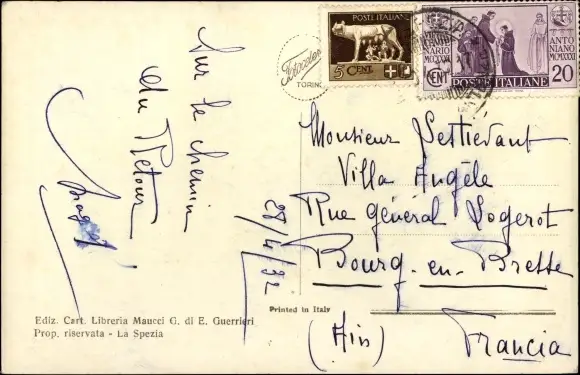 Sur le chemin
du Retour
28/4/32
POSTE ITALIANE
5 CENT.
Fotocelere
TORINO
CENTE
NARIO
MCCXXXI
CENT
ANTO
NIANO
MCMXXXI
POSTE ITALIANE
20
Monsieur
Villa Angèle
Rue général Logerot
Bourg-en-Bresse
(Ain)
Francia
Printed in Italy
Ediz. Cart. Libreria Maucci G. di E. Guerrieri
Prop. riservata - La Spezia